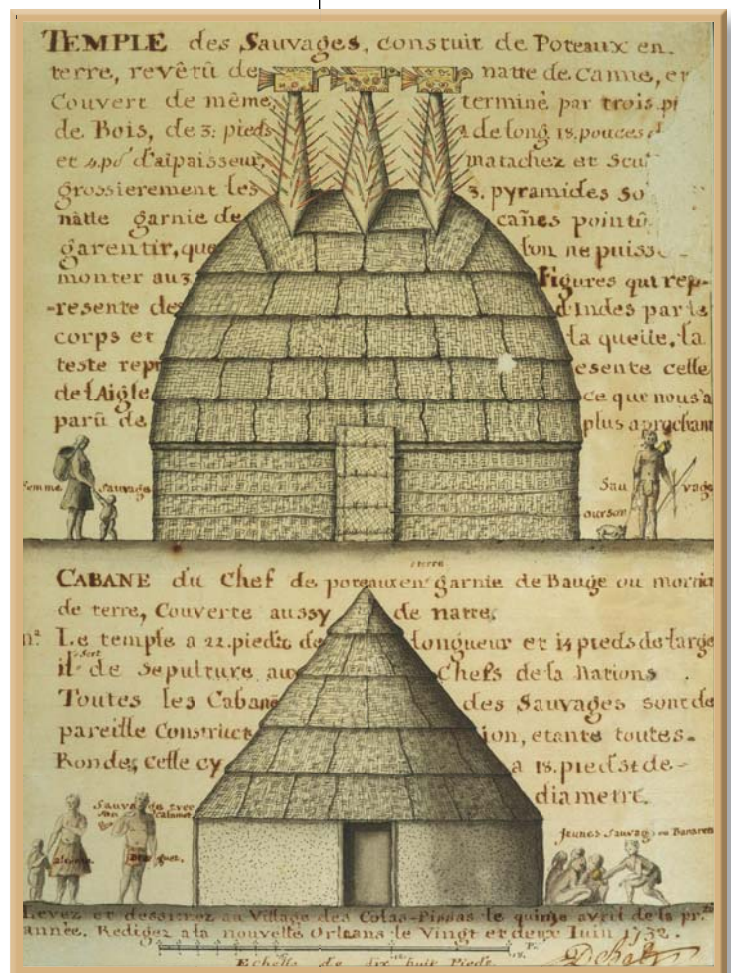 TEMPLE des Sauvages, construit de Poteaux en
terre, revêtû de natte de Canne, et
Couvert de même, terminé par trois
de Bois, de 3: pieds de long, 18. pouces
et 4. po d'aipaisseur, matachez et
grossierement les 3. pyramides
nâtte garnie de cañes pointû
garentir, que l'on ne
monter aux figures qui rep-
-resente des d'Indes par le
corps et la queüe, la
teste repr esente celle
de l'Aigle ce que nous a
parû de plus aprochant
femme Sauvage
Sau vage
ourson
CABANE du Chef de poteaux en terre garnie de Bauge ou mortier
de terre, Couverte aussy de natte,
nª. Le temple a 22. pieds de longueur et 14 pieds de large
il sert de Sepulture aux Chefs de la Nations
Toutes les Cabane des Sauvages sont de
pareille Construct ion, etante toutes
Rondes, Celle cy a 18. pieds de
diametre.
Sauvage avec
son calumet
jeunes Sauvag
Levez et dessinez au Village des Colas-Pissas le quinze avril de la pr.te
année. Redigez a la nouvelle Orleans le Vingt et deux Iuin 1732.
Echelle de dix huit Pieds